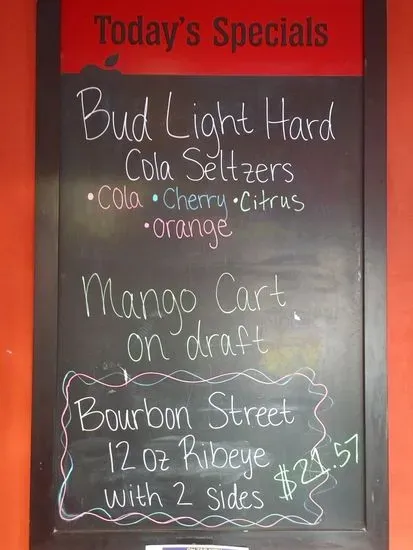 Today's Specials
Bud Light Hard
Cola Seltzers
•Cola •Cherry •Citrus
•orange
Mango Cart
on draft
Bourbon Street
12 oz Ribeye
with 2 sides $21.57